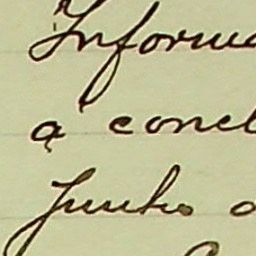 Informa
a concl
Junho d